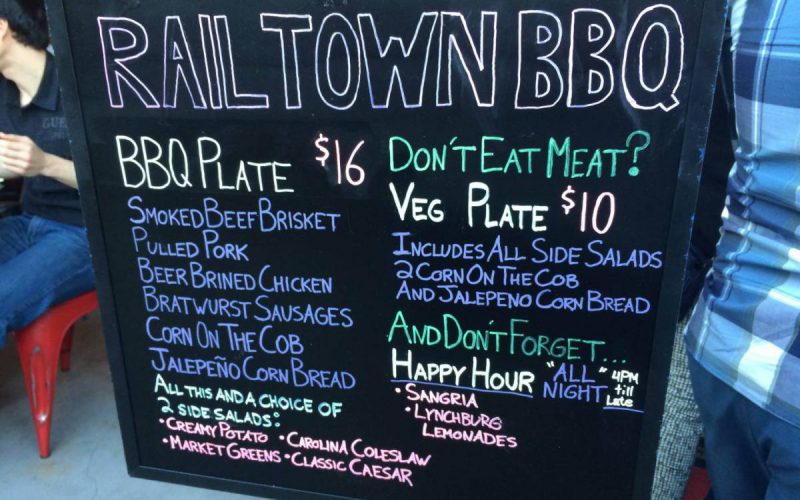 RAILTOWN BBQ
BBQ PLATE $16
SMOKED BEEF BRISKET
PULLED PORK
BEER BRINED CHICKEN
BRATWURST SAUSAGES
CORN ON THE COB
JALEPEÑO CORN BREAD
ALL THIS AND A CHOICE OF
2 SIDE SALADS:
• CREAMY POTATO • CAROLINA COLESLAW
• MARKET GREENS • CLASSIC CAESAR
DON'T EAT MEAT?
VEG PLATE $10
INCLUDES ALL SIDE SALADS
2 CORN ON THE COB
AND JALEPENO CORN BREAD
AND DON'T FORGET...
HAPPY HOUR "ALL NIGHT" 4PM till Late
• SANGRIA
• LYNCHBURG
LEMONADES